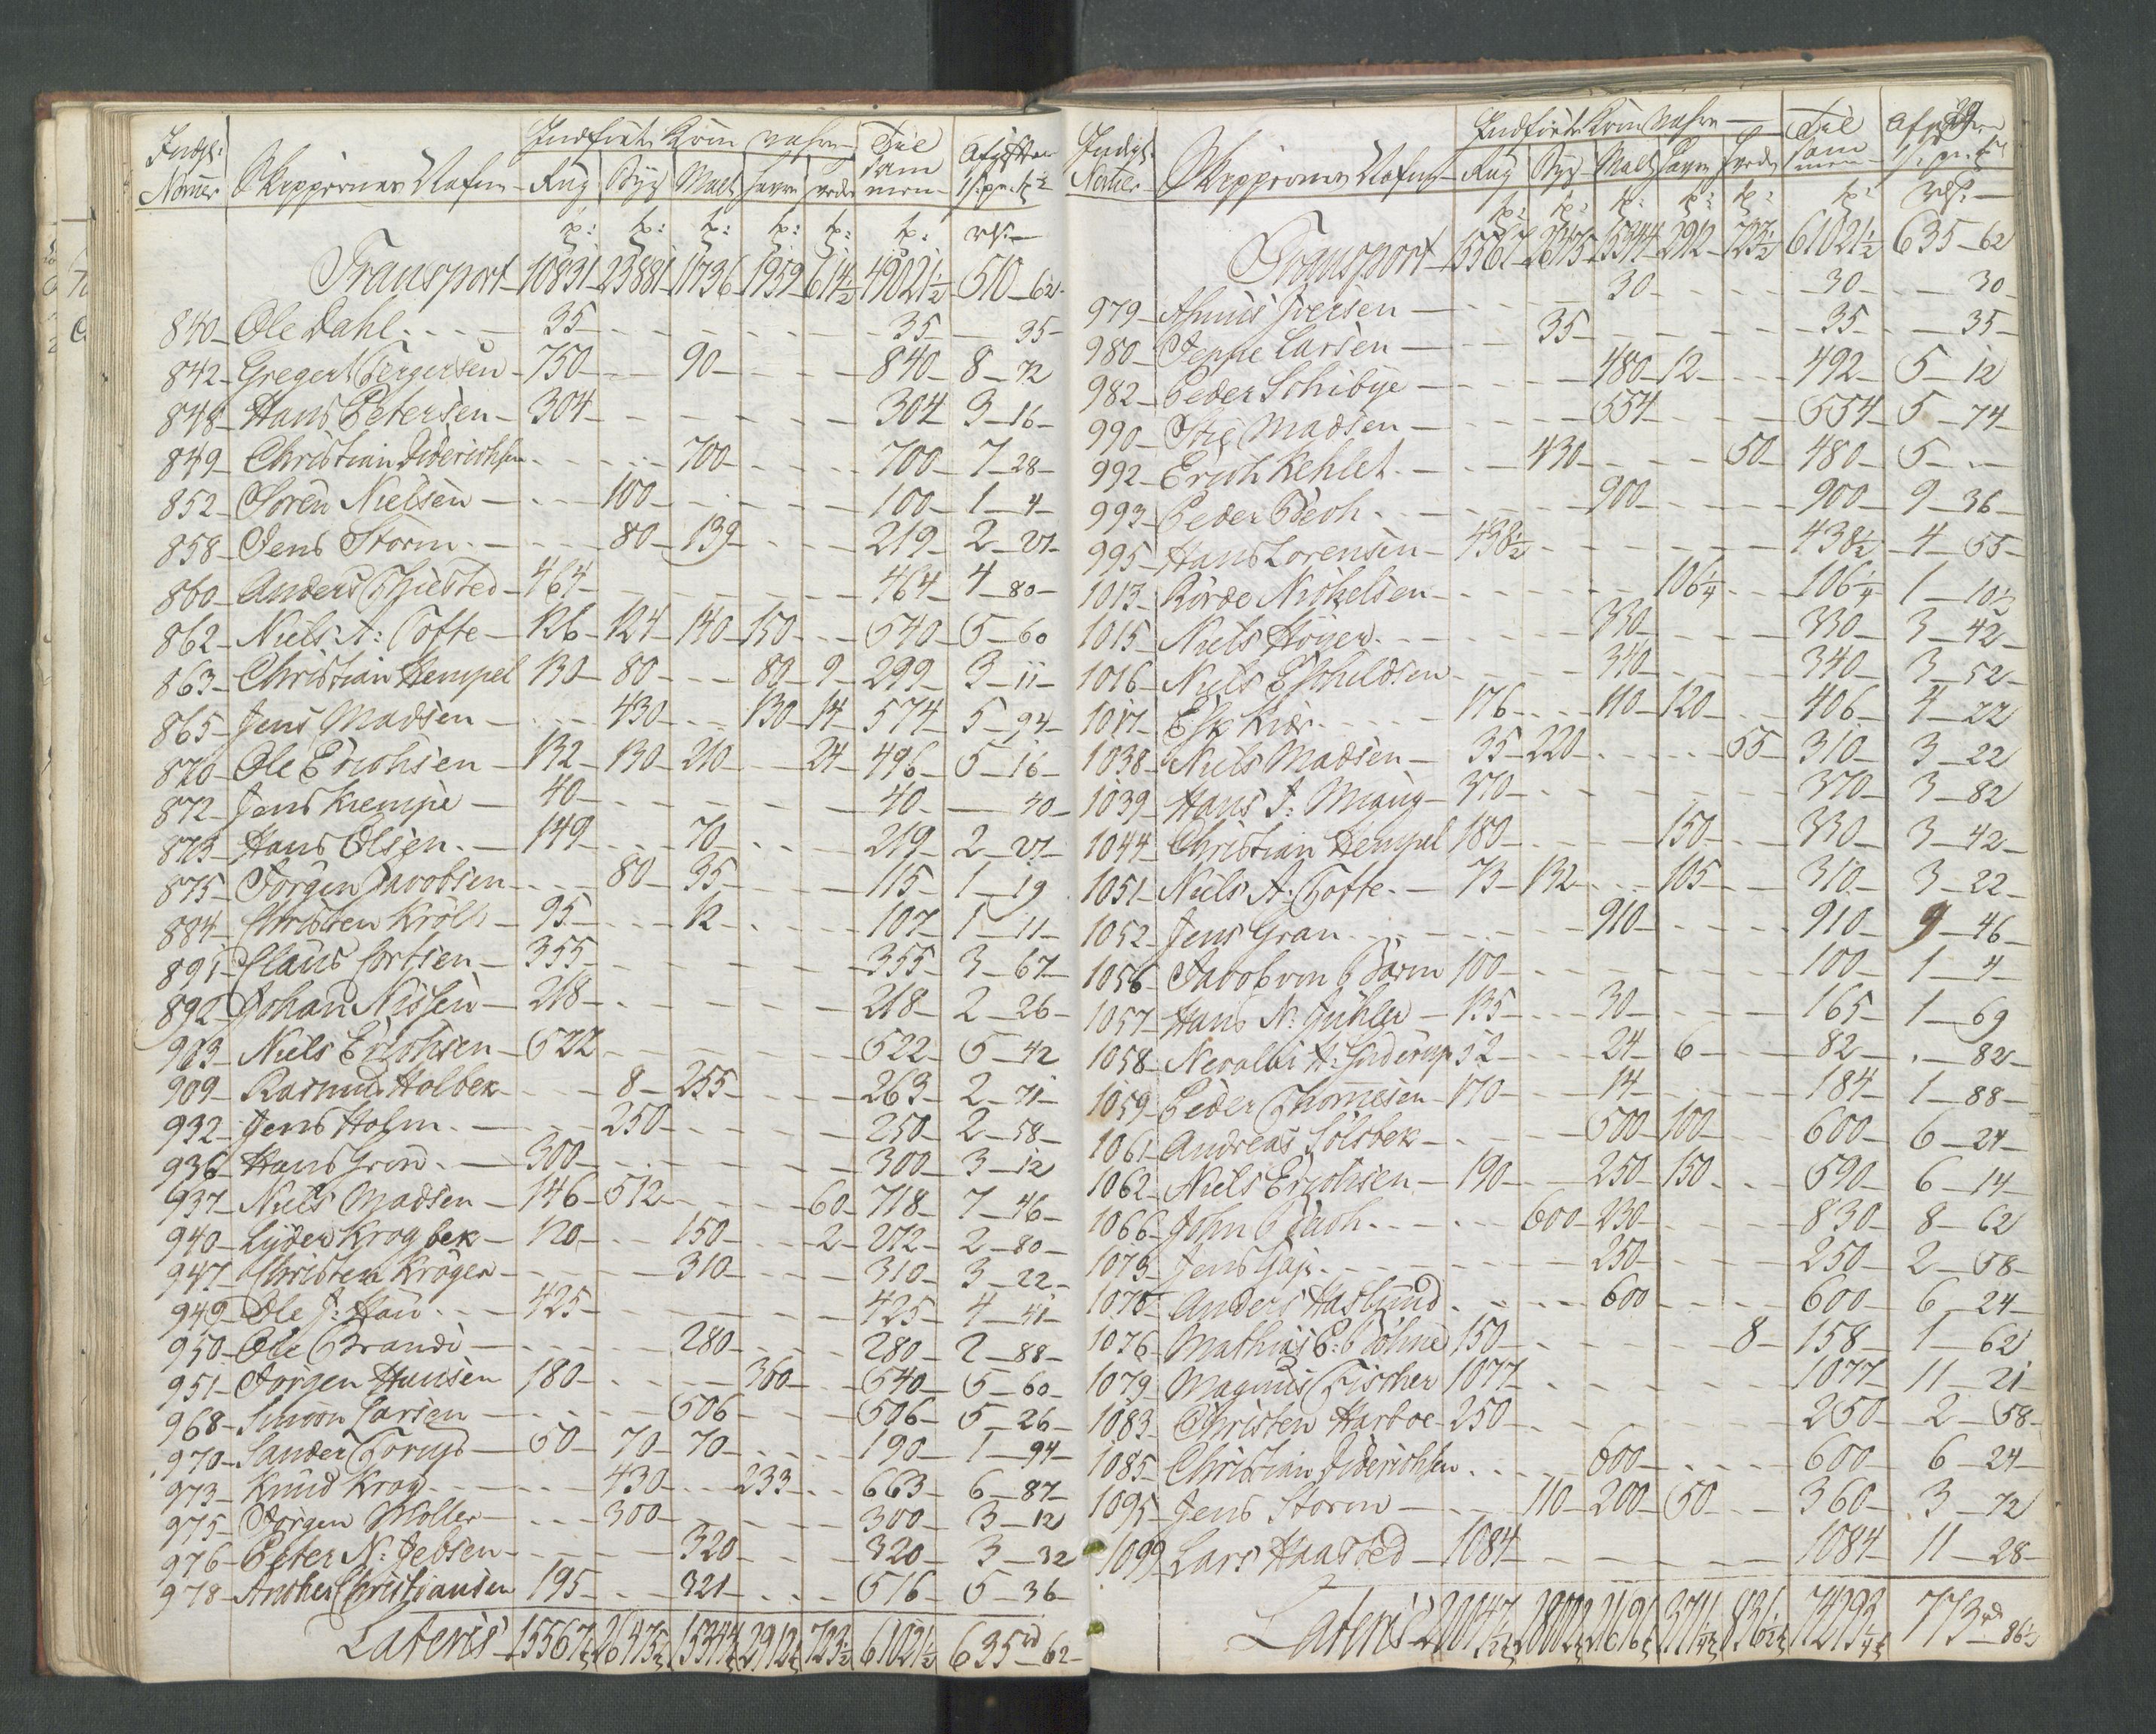 Indførte Korn Vahre
Til Afgiften
Skippernes Nafne Rug Byg Malt Havre sammen
Transport 10831 23881 11736 1959 614½ 49021½ 510 62
840 Ole Dahl 35 35 35
842 Gregert Gergersen 750 90 840 8 72
848 Hans Petersen 304 304 3 16
849 Christian Diderichsen 700 700 7 28
852 Søren Nielsen 100 100 1 4
858 Jens Storm 80 139 219 2 27
860 Anders Thisted 464 464 4 80
862 Niels A: Tofte 126 124 140 150 540 5 60
863 Christian Hempel 130 80 80 9 299 3 11
865 Jens Madsen 430 130 14 574 5 94
870 Ole Erichsen 132 130 210 24 496 5 16
872 Jens Krempe 40 40 40
873 Hans Olsen 149 70 219 2 27
875 Jørgen Jacobsen 80 35 115 1 19
884 Christen Kröll 95 12 107 1 11
891 Claus Cortsen 355 355 3 67
892 Johan Nissen 218 218 2 26
903 Niels Erichsen 522 522 5 42
909 Rasmus Holbek 8 255 263 2 71
932 Jens Holm 250 250 2 58
936 Hans Grön 300 300 3 12
937 Niels Madsen 146 512 60 718 7 46
940 Lyder Krogbek 120 150 2 272 2 80
947 Christen Kröger 310 310 3 22
949 Ole J: Hau 425 425 4 41
950 Ole Brandi 280 280 2 88
951 Jörgen Hansen 180 360 540 5 60
968 Simon Larsen 506 506 5 26
970 Sander Torup 50 70 70 190 1 94
973 Knud Krag 430 233 663 6 87
975 Jörgen Möller 300 300 3 12
976 Peter N: Jebsen 320 320 3 32
978 Ancher Christiansen 195 321 516 5 36
Lateris 15567 26475 15344 2912 723½ 61021½ 635 rd 62
29
Indførte Korn Vahre
Til Afgiften
Skippernes Nafne Rug Byg Malt Havre sammen
Transport 15567 26475 15344 2912 723½ 61021½ 635 62
979 Asmus Iversen 30 30 30
980 Jeppe Larsen 35 35 35
982 Peder Schibye 480 12 492 5 12
990 Stie Madsen 554 554 5 74
992 Erich Kehlet 430 50 480 5
993 Peder Bech 900 900 9 36
995 Hans Lorensen 438½ 438½ 4 55
1013 Rörde Nickelsen 106¼ 106¼ 1 10½
1015 Niels Höyer 330 330 3 42
1016 Niels Eskildsen 340 340 3 52
1017 Esk Kier 176 110 120 406 4 22
1038 Niels Madsen 35 220 55 310 3 22
1039 Hans J: Maug 370 370 3 82
1044 Christian Hempel 180 150 330 3 42
1051 Niels A: Tofte 73 132 105 310 3 22
1052 Jens Gran 910 910 9 46
1056 Jacob von Barm 100 100 1 4
1057 Hans N: Juhler 135 30 165 1 69
1058 52 24 6 82 82
1059 Peder Thomesen 170 14 184 1 88
1061 Andreas Solsbek 500 100 600 6 24
1062 Niels Erichsen 190 250 150 590 6 14
1066 John Bech 600 230 830 8 62
1073 Jens Gaji 250 250 2 58
1075 Anders Haslund 600 600 6 24
1076 Mathias P: Böhme 150 8 158 1 62
1079 Magnus Fischer 1077 1077 11 21
1083 Christen Harboe 250 250 2 58
1085 Christian Diderichsen 600 600 6 24
1095 Jens Storm 110 200 50 360 3 72
1099 Lars Haasted 1084 1084 11 28
Lateris 20047½ 28002 21696 3711¼ 836½ 74293¼ 773 rd 86½